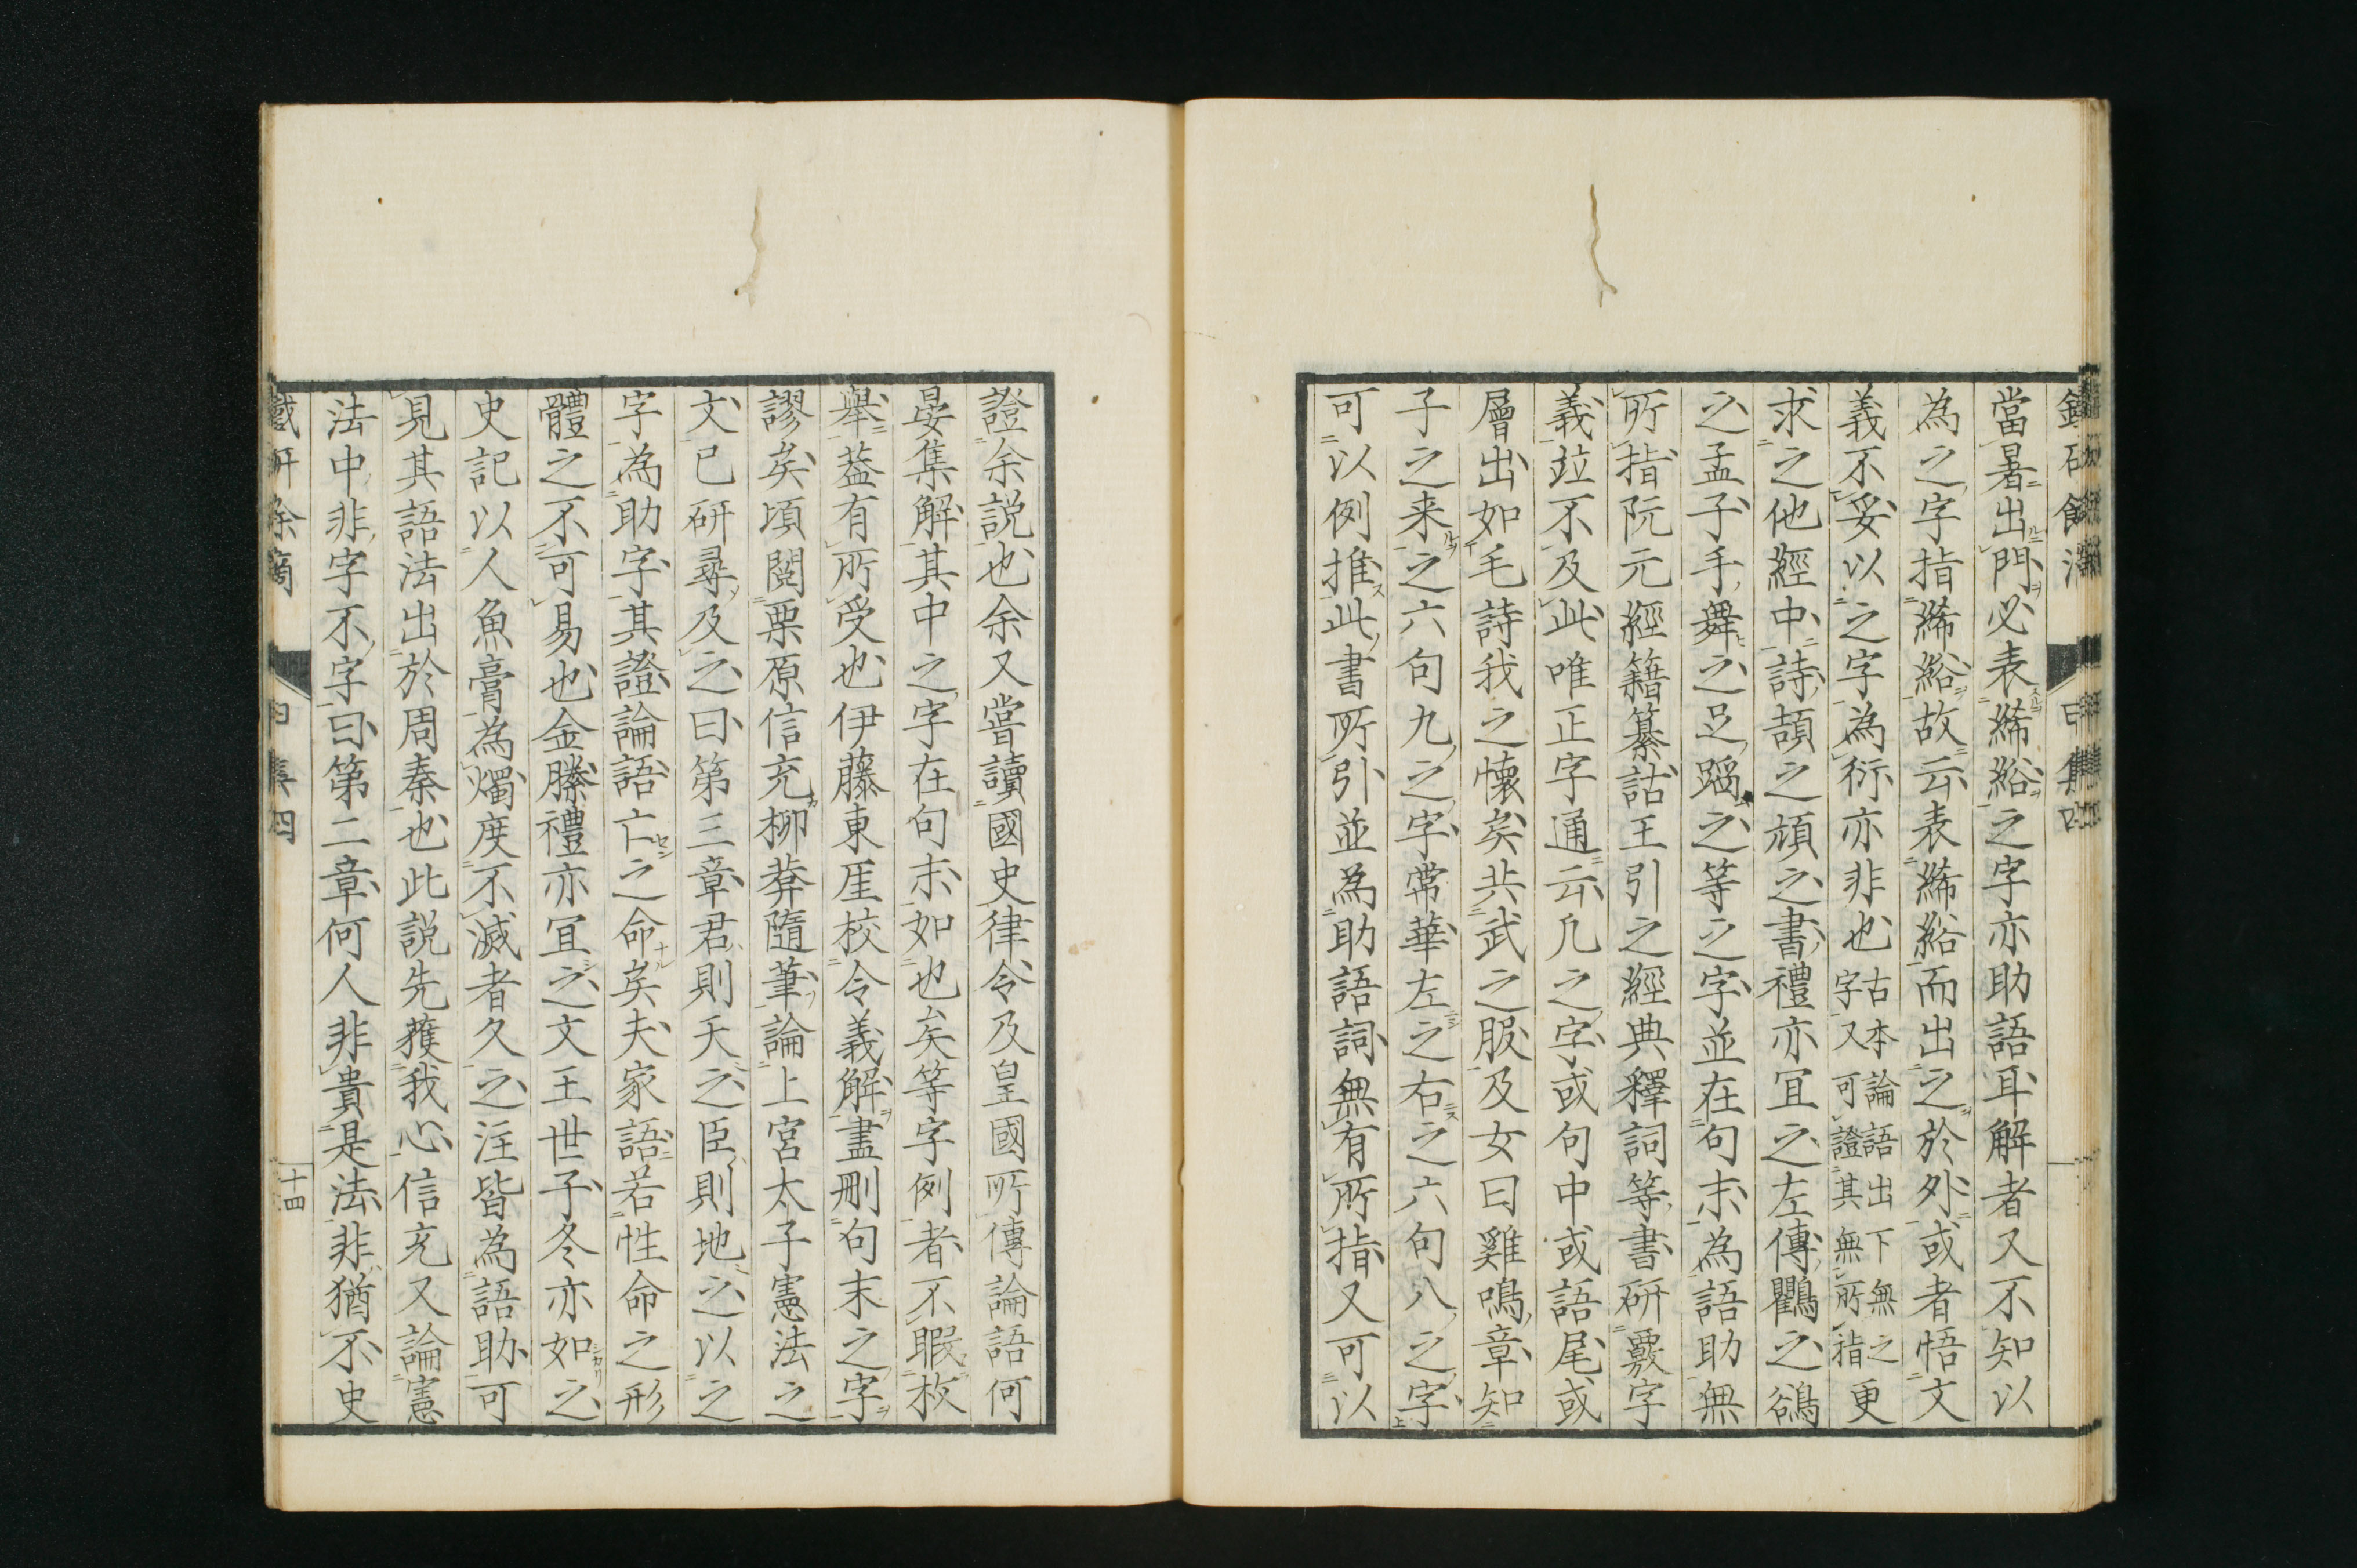 當暑出門必表絺綌之字亦助語耳解者又不知以
為之字指絺綌故云表絺綌而出之於外或者悟文
義不妥以之字為衍亦非也古本論語出下無之字又可證其無所指更
求之他經中詩頡之頏之書禮亦宜之左傳鸜之鵒
之孟子手舞之足蹈之等之字並在句末為語助無
所指阮元經籍纂詁王引之經典釋詞等書研覈字
義竝不及此唯正字通云凡之字或句中或語尾或
層出如毛詩我之懷矣共武之服及女曰雞鳴章知
子之来之六句九之字常華左之右之六句八之字
可以例推此書所引並為助語詞無有所指又可以
證余説也余又嘗讀國史律令及皇國所傳論語何
晏集解其中之字在句末如也矣等字例者不暇枚
舉葢有所受也伊藤東厓校令義解盡刪句末之字
謬矣頃閲栗原信充柳莽隨筆論上宮太子憲法之
文已研尋及之曰第三章君則天之臣則地之以之
字為助字其證論語亡之命矣夫家語若性命之形
體之不可易也金縢禮亦宜之文王世子冬亦如之
史記以人魚膏為燭度不滅者久之注皆為語助可
見其語法出於周秦也此説先獲我心信充又論憲
法中非字不字曰第二章何人非貴是法非猶不史
鐵研餘滴 四
十四